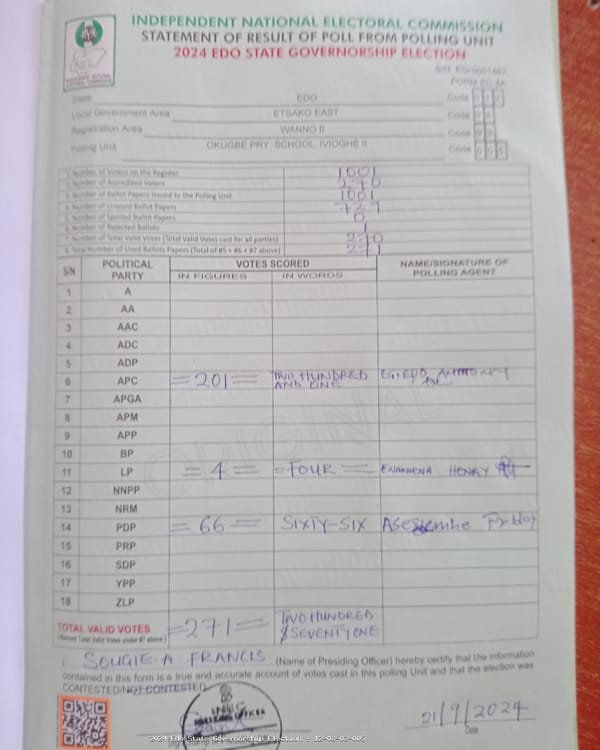 INDEPENDENT NATIONAL ELECTORAL COMMISSION
STATEMENT OF RESULT OF POLL FROM POLLING UNIT
2024 EDO STATE GOVERNORSHIP ELECTION
FORM EC 8A
State EDO Code
Local Government Area ETSAKO EAST Code
Registration Area WANNO II Code
Polling Unit OKUGBE PRY SCHOOL, IVIOGHE II Code
1. Number of Voters on the Register 1001
2. Number of Accredited Voters 270
3. Number of Ballot Papers Issued to the Polling Unit 1001
4. Number of Unused Ballot Papers 729
5. Number of Spoiled Ballot Papers 0
6. Number of Rejected Ballots 1
7. Number of Total Valid Votes (Total Valid Votes cast for all parties) 270
8. Total Number of Used Ballots Papers (Total of #5 + #6 + #7 above) 271
S/N POLITICAL PARTY VOTES SCORED NAME/SIGNATURE OF POLLING AGENT
IN FIGURES IN WORDS
1 A
2 AA
3 AAC
4 ADC
5 ADP
6 APC =201= TWO HUNDRED AND ONE
7 APGA
8 APM
9 APP
10 BP
11 LP =4= =FOUR= ENAKHENA HENRY
12 NNPP
13 NRM
14 PDP =66= SIXTY-SIX
15 PRP
16 SDP
17 YPP
18 ZLP
ORIGINAL
TOTAL VALID VOTES =271= TWO HUNDRED & SEVENTY ONE
I, SOUGIE.A FRANCIS (Name of Presiding Officer) hereby certify that the information
contained in this form is a true and accurate account of votes cast in this polling Unit and that the election was
CONTESTED/NOT CONTESTED
INEC
21/9/2024
Date
2024 Edo State Governorship Election - 12-03-03-005